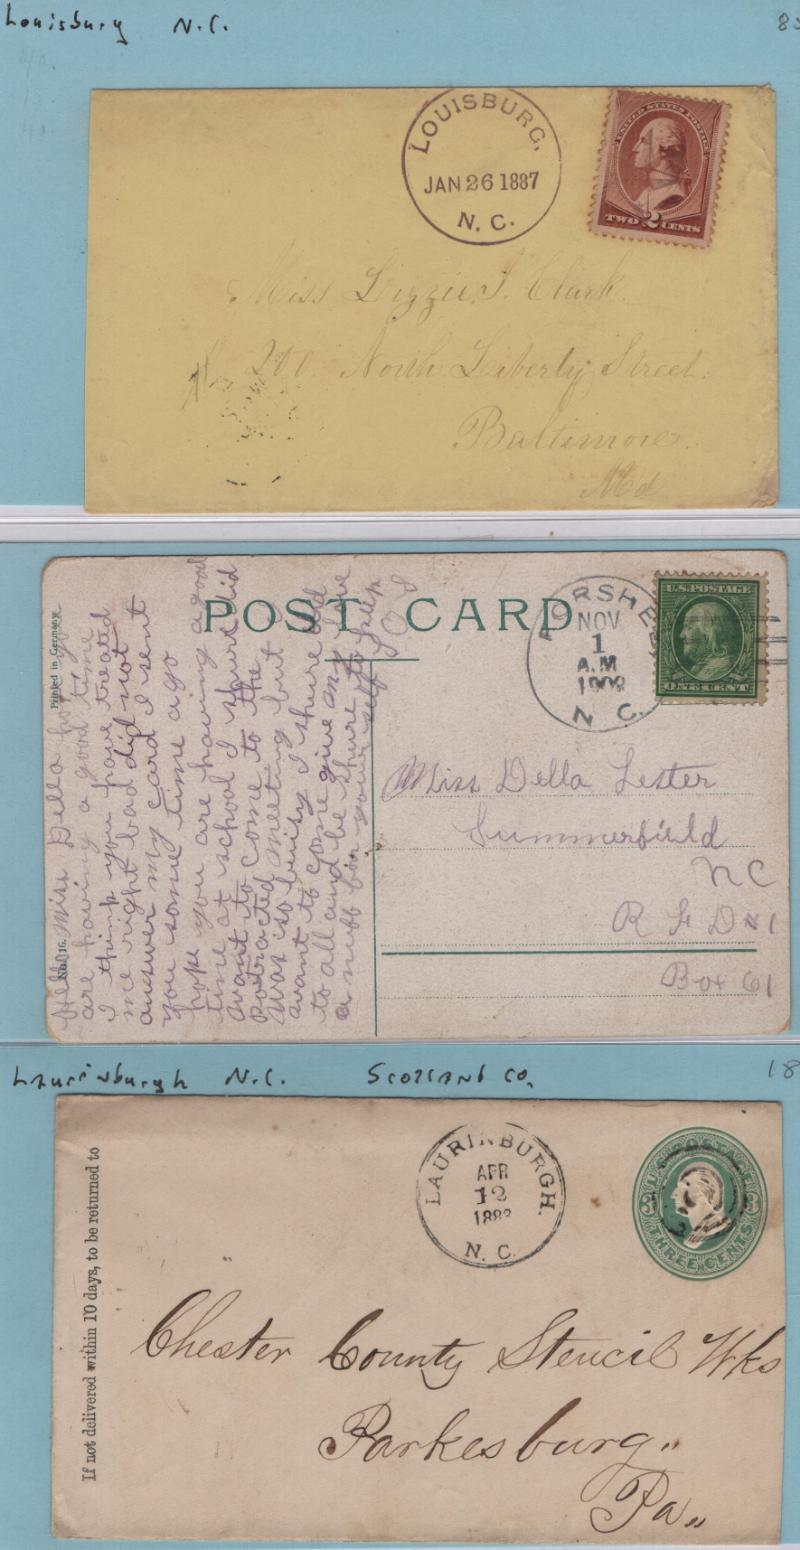 Louisburg N.C.
LOUISBURG,
JAN 26 1887
N. C.
UNITED STATES POSTAGE
TWO 2 CENTS
Miss Lizzie J. Clark
200 North Liberty Street.
Baltimore.
Md
Printed in Germany
No. 16.
POST CARD
NOV
1
A.M
N C.
U.S. POSTAGE
ONE CENT
Hello Miss Della hope you
are having a good time
I think you have treated
me right bad did not
answer my card I sent
you some time a go
hope you are having a good
time at school I shure did
want to come to the
Potracted meeting but
was so buisy I shure did
want to come give my love
to all and be shure to keep
a nuff for your self
Miss Della Lester
Summerfield
NC
R F D #1
Box 61
Laurinburgh N.C. Scotland Co.
18
LAURINBURGH.
APR
12
N. C.
U.S. POSTAGE
3 3
THREE CENTS
If not delivered within 10 days, to be returned to
Chester County Stencil Wks
Parkesburg,,
Pa,,